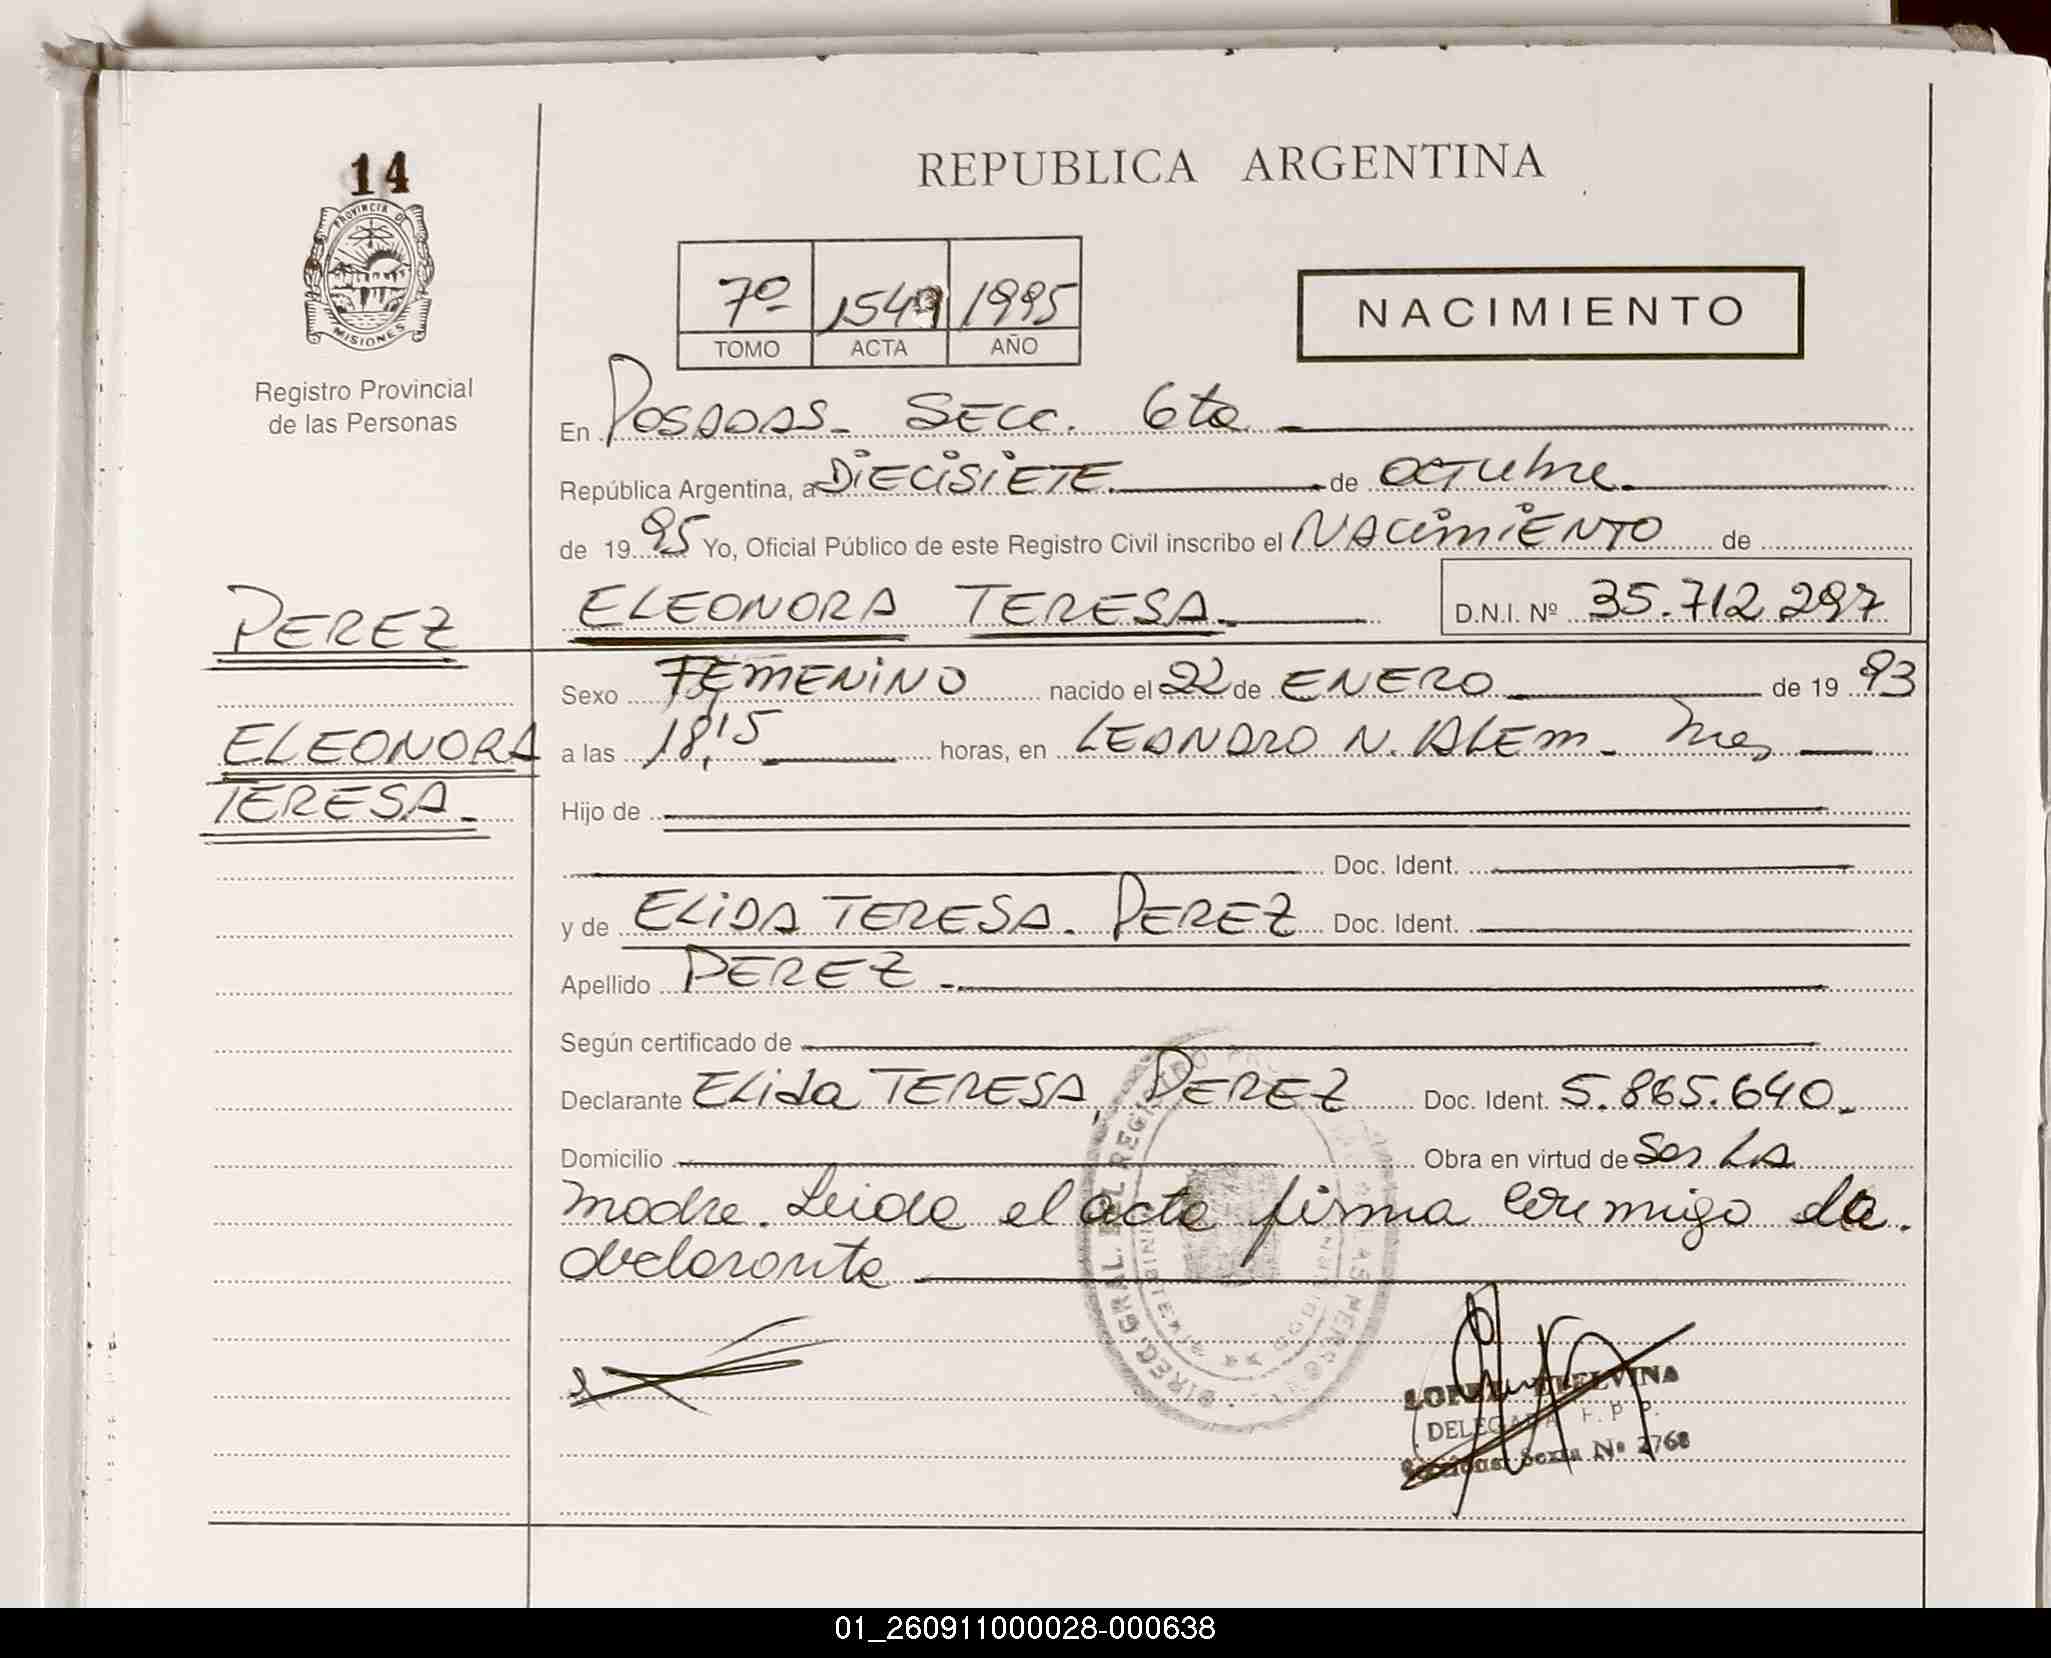 14
PROVINCIA D
MISIONES
Registro Provincial
de las Personas
REPUBLICA ARGENTINA
7º 1549 1995
TOMO ACTA AÑO
NACIMIENTO
En POSADAS - SECC. 6ta
República Argentina, a DIECISIETE de OCTUbre
de 1995 Yo, Oficial Público de este Registro Civil inscribo el NACIMIENTO de
PEREZ ELEONORA TERESA D.N.I. Nº 35.712.297
Sexo FEMENINO nacido el 22 de ENERO de 1993
ELEONORA a las 18,15 horas, en LEANDRO N. ALEM - Mnes
TERESA.- Hijo de
Doc. Ident.
y de ELIDA TERESA. PEREZ Doc. Ident.
Apellido PEREZ -
Según certificado de
Declarante ELida TERESA, PEREZ Doc. Ident. 5.865.640.-
Domicilio Obra en virtud de Ser La
madre. Leida el acta firma conmigo la
declarante
DIREC. GRAL. DEL REGISTRO DE LAS PERSONAS
LOPEZ ETELVINA
DELEGADA R. P. P.
Seccional Sexta Nº 2768
01_260911000028-000638